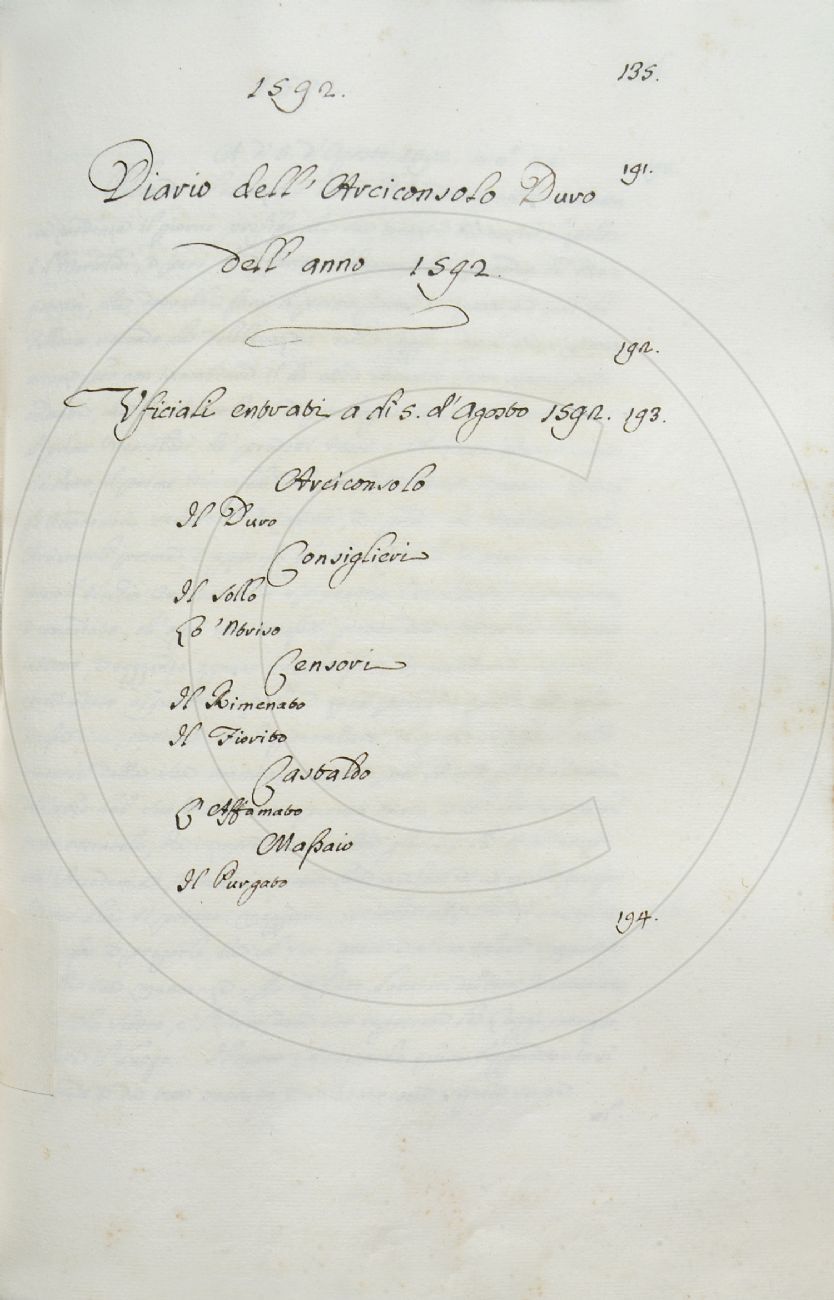 1592.
135.
Diario dell'Arciconsolo Duro
191.
dell'anno 1592.
192.
Uficiali entrati a dì 5. d'Agosto 1592. 193.
Arciconsolo
Il Duro
Consiglieri
Il Sollo
Lo 'Ntriso
Censori
Il Rimenato
Il Fiorito
Castaldo
L'Affamato
Massaio
Il Purgato
194.